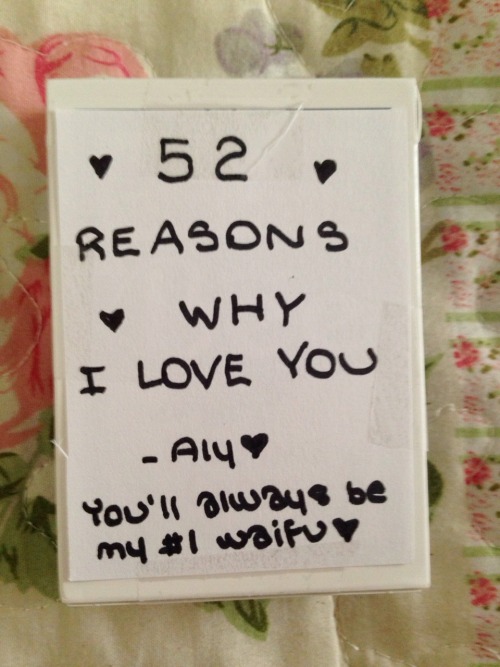 ♥ 52 ♥
REASONS
♥ WHY
I LOVE YOU
- Aly♥
You'll always be
my #1 waifu♥